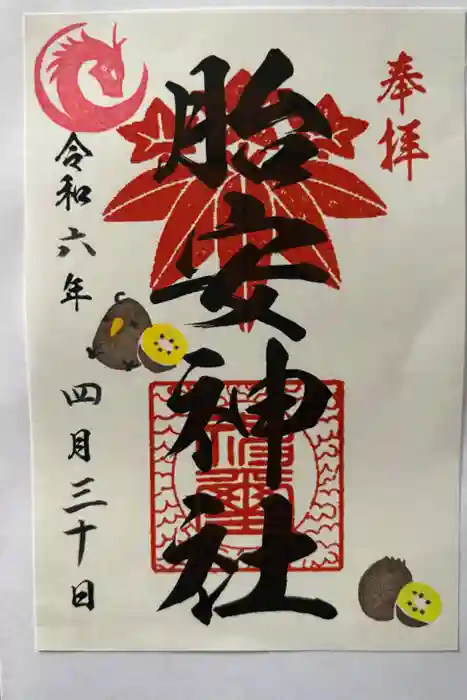 奉拝
胎安神社
令和六年
四月三十日